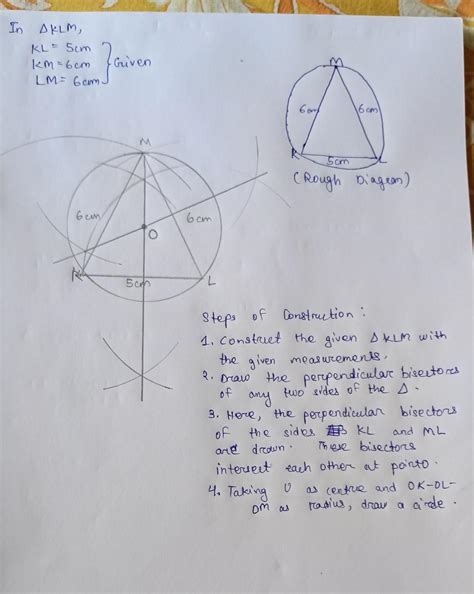 In ΔKLM,
KL = 5cm
KM = 6cm } Given
LM = 6cm
M
6cm 6cm
K 5cm L
(Rough Diagram)
M
6cm 6cm
O
K 5cm L
Steps of Construction :
1. Construct the given ΔKLM with
the given measurements.
2. Draw the perpendicular bisectors
of any two sides of the Δ.
3. Here, the perpendicular bisectors
of the sides KL and ML
are drawn. These bisectors
intersect each other at point O.
4. Taking O as centre and OK-OL-
OM as radius, draw a circle.